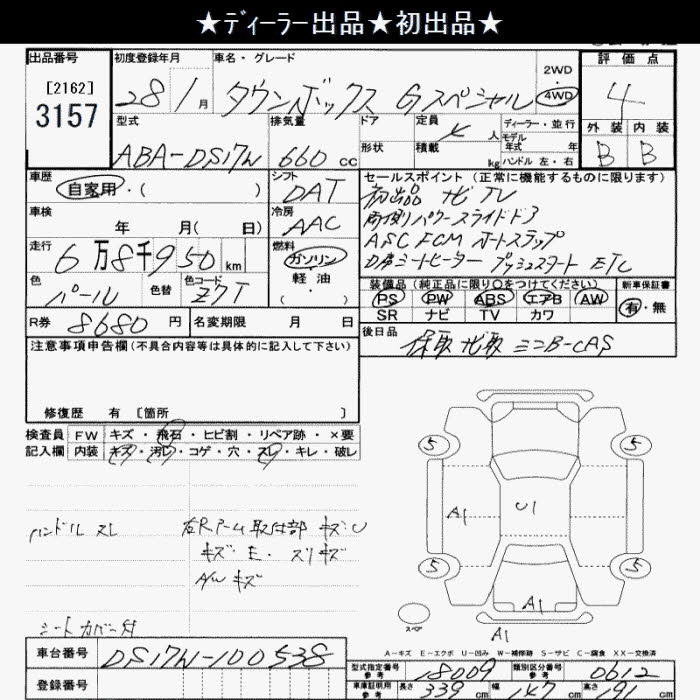 ★ディーラー出品★初出品★
出品番号 初度登録年月 車名・グレード 評価点
[2162]
3157
28 1月 タウンボックス Gスペシャル
2WD
・
4WD
4
型式 排気量 ドア 定員 ディーラー・並行
人 モデル
形状 積載 年式 年
kg ハンドル 左・右
外装 内装
B B
ABA-DS17W 660 cc
車歴 シフト セールスポイント (正常に機能するものに限ります)
自家用・( ) DAT
初出品 ナビ TV
車検 冷房
年 月( 日) AAC
両側パワースライドドア
ASC FCM オートステップ
走行 燃料
6万8千950 km
ガソリン
軽油
D席シートヒーター プッシュスタート ETC
色 色替 色コード
パール Z7T
装備品 (純正品に限り○をつけてください) 新車保証書
PS PW ABS エアB AW
SR ナビ TV カワ
有・無
R券 8680 円 名変期限 月 日
後日品
保取 ナビ取 ミニB-CAS
注意事項申告欄(不具合内容等は具体的に記入して下さい)
修復歴 有 [箇所 ]
検査員 FW キズ・飛石・ヒビ割・リペア跡・×要
記入欄 内装 キズ・汚レ・コゲ・穴・スレ・キレ・破レ
5 5
A1 U1
ハンドル スレ
右Rアーム取付部 キズ・U
キズ・E・スリキズ
A/W キズ
5 5
A1
スペア
A1
シートカバー付
A-キズ E-エクボ U-凹み W-補修跡 S-サビ C-腐食 XX-交換済
車台番号 DS17W-100538
登録番号
型式指定番号 参考 18009 類別区分番号 参考 0612
車庫証明用 参考 長さ 339 cm 幅 147 cm 高さ 191 cm